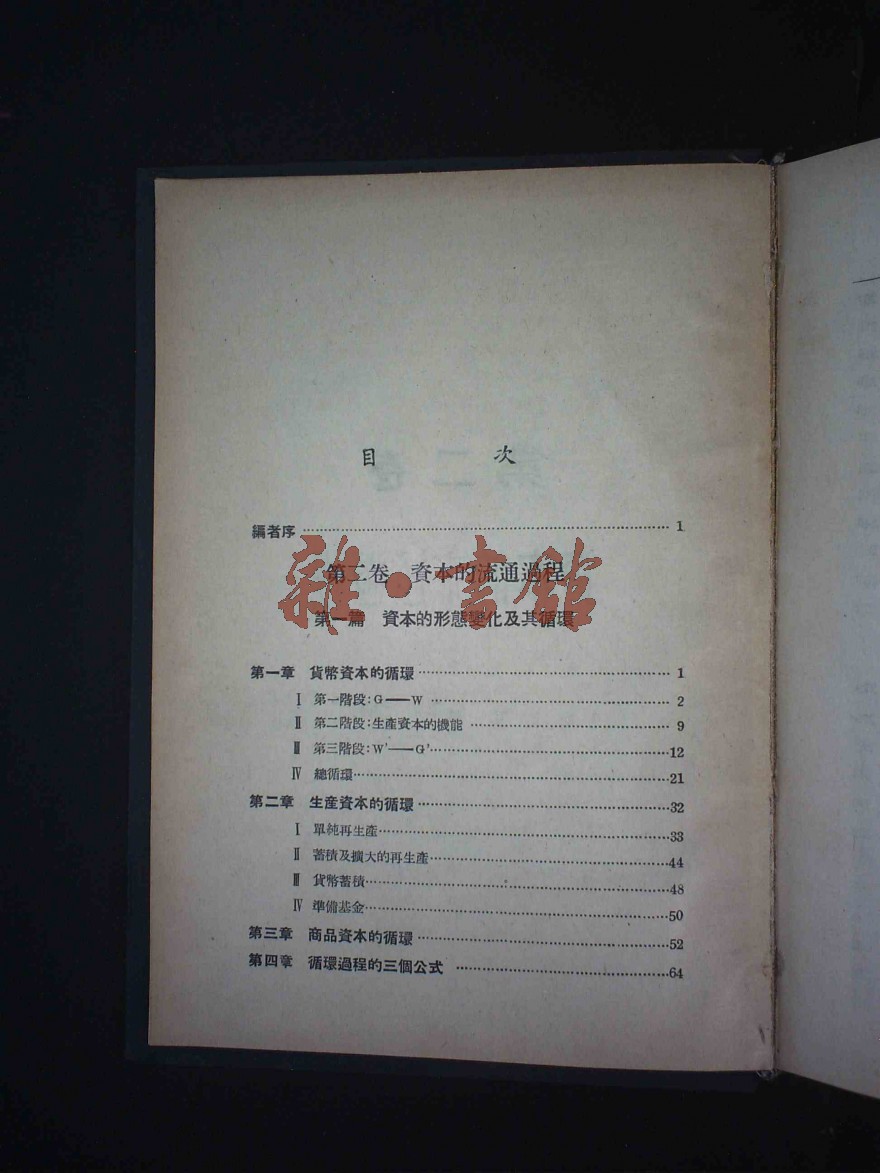 目 次
編者序 1
第二卷 資本的流通過程
雜·書館
第一篇 資本的形態變化及其循環
第一章 貨幣資本的循環 1
Ⅰ 第一階段：G——W 2
Ⅱ 第二階段：生產資本的機能 9
Ⅲ 第三階段：W'——G' 12
Ⅳ 總循環 21
第二章 生産資本的循環 32
Ⅰ 單純再生產 33
Ⅱ 蓄積及擴大的再生產 44
Ⅲ 貨幣蓄積 48
Ⅳ 準備基金 50
第三章 商品資本的循環 52
第四章 循環過程的三個公式 64